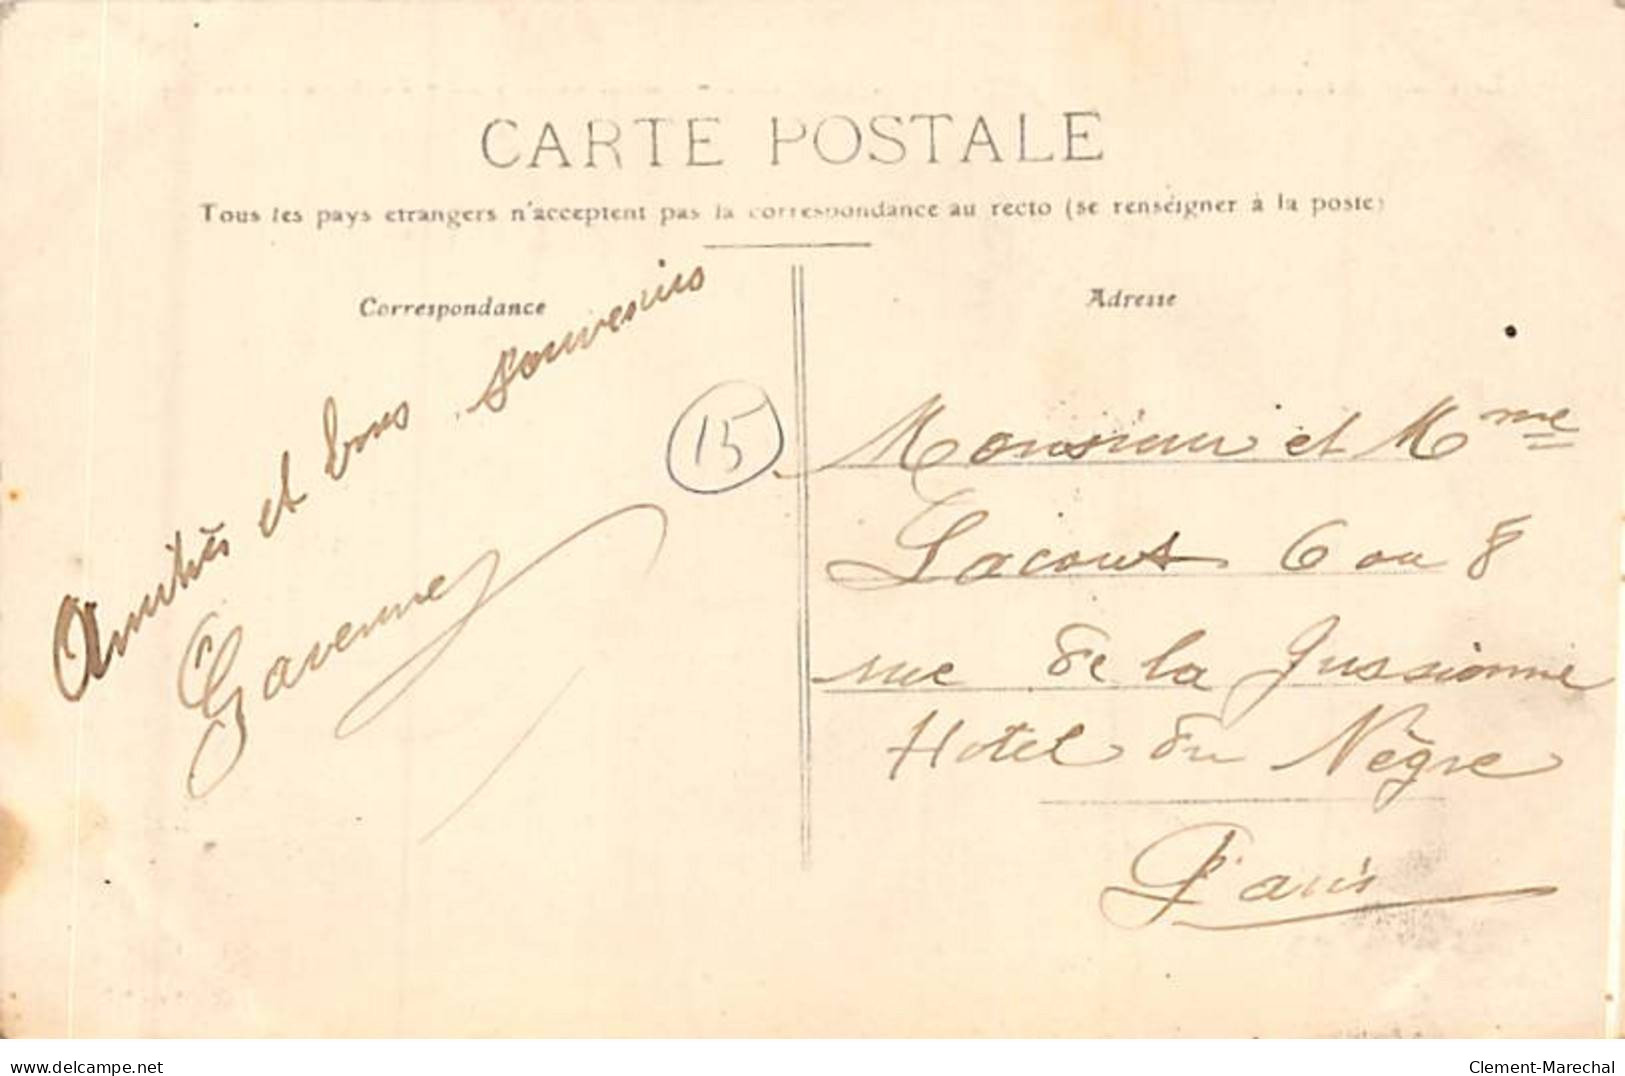 CARTE POSTALE
Tous les pays etrangers n'acceptent pas la correspondance au recto (se renseigner à la poste)
Correspondance
Amitiés et bons souvenirs
15
Adresse
Monsieur et Mme
Lacout 6 ou 8
rue de la Jussionne
Hotel du Nègre
Paris
delcampe.net
Clement-Marechal